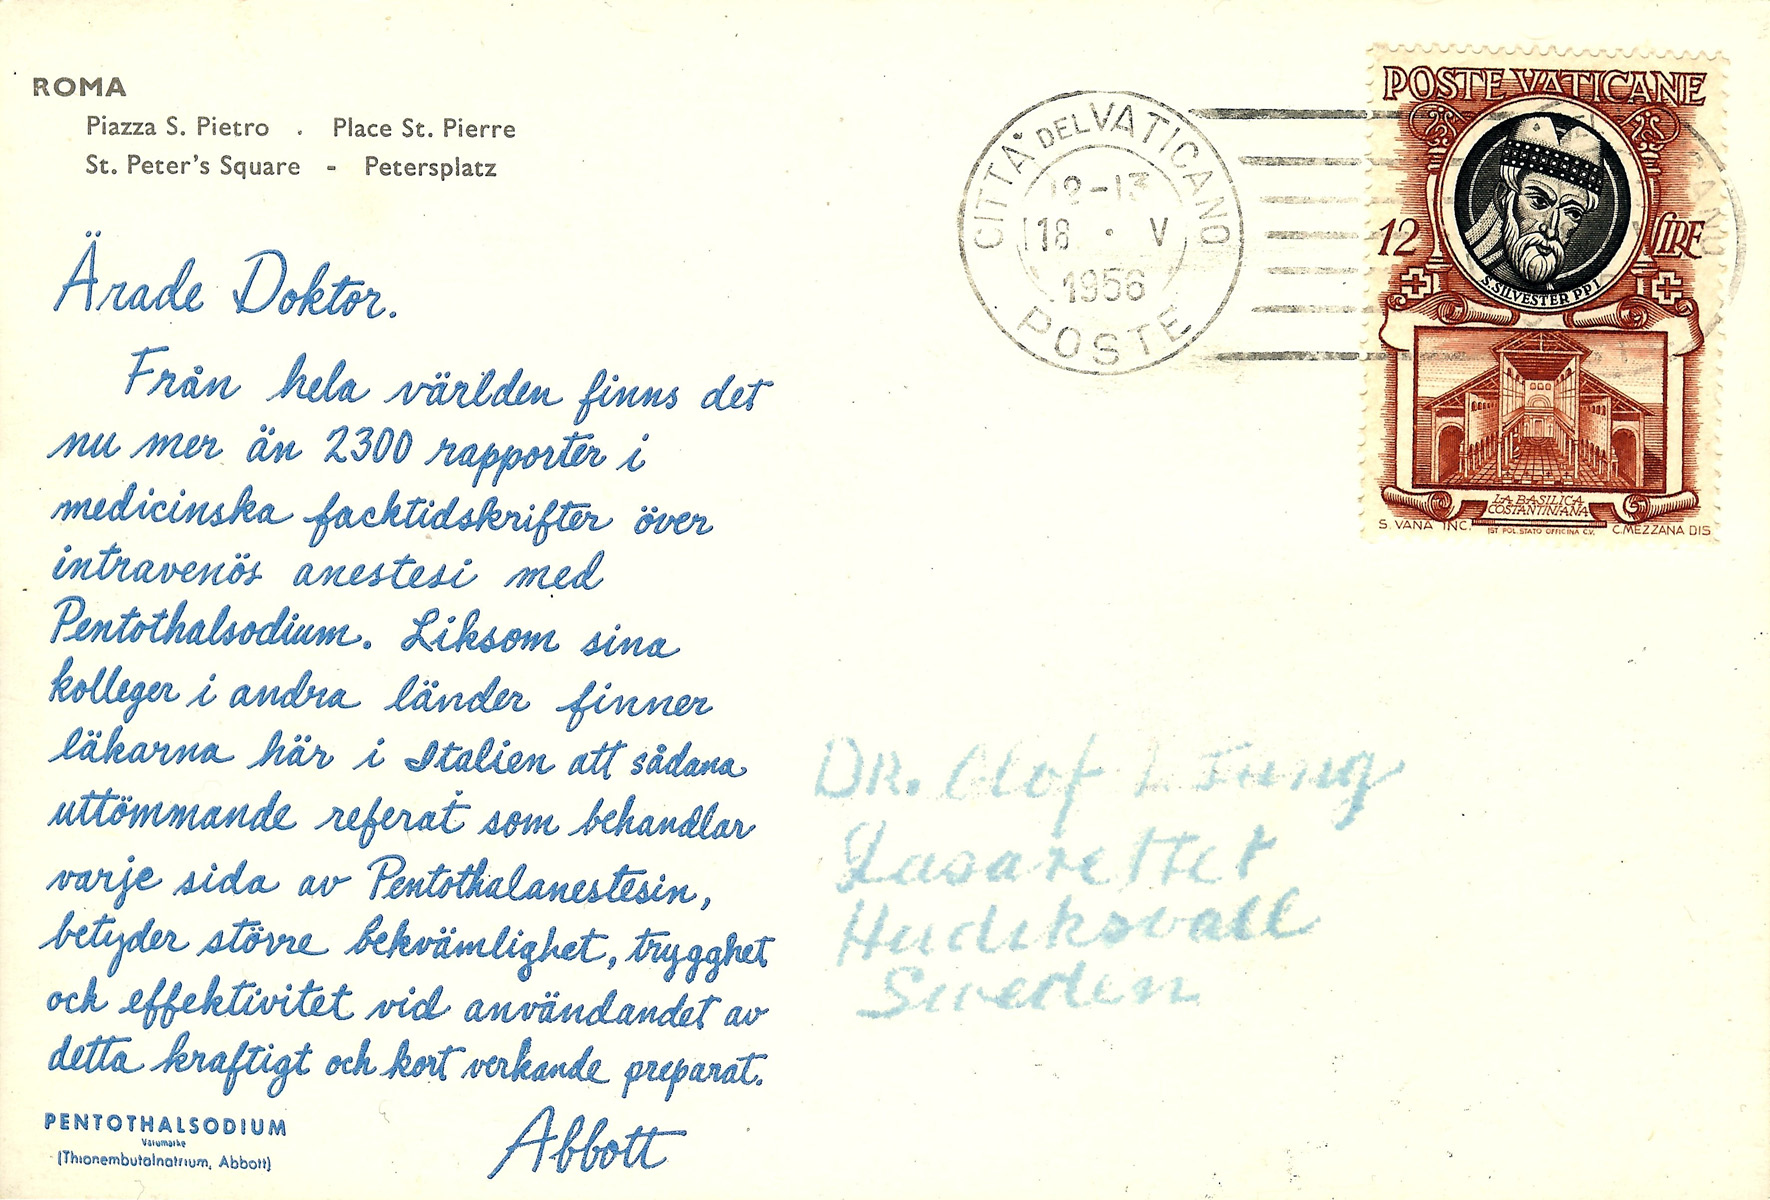 ROMA
Piazza S. Pietro . Place St. Pierre
St. Peter's Square - Petersplatz
Ärade Doktor.
Från hela världen finns det
nu mer än 2300 rapporter i
medicinska facktidskrifter över
intravenös anestesi med
Pentothalsodium. Liksom sina
kolleger i andra länder finner
läkarna här i Italien att sådana
uttömmande referat som behandlar
varje sida av Pentothalanestesin,
betyder större bekvämlighet, trygghet
och effektivitet vid användandet av
detta kraftigt och kort verkande preparat.
Abbott
PENTOTHALSODIUM
Varumärke
(Thionembutalnatrium, Abbott)
CITTÀ DEL VATICANO
12-13
18 · V
1956
POSTE
POSTE VATICANE
12 LIRE
S. SILVESTER PP I
LA BASILICA
COSTANTINIANA
S. VANA INC. IST. POL. STATO OFFICINA C.V. C. MEZZANA DIS
DR. Olof
Lasarettet
Hudiksvall
Sweden